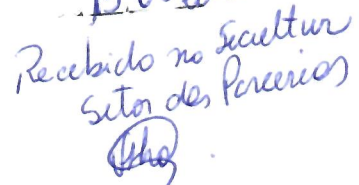 Recebido no Secultur
Setor das Parcerias